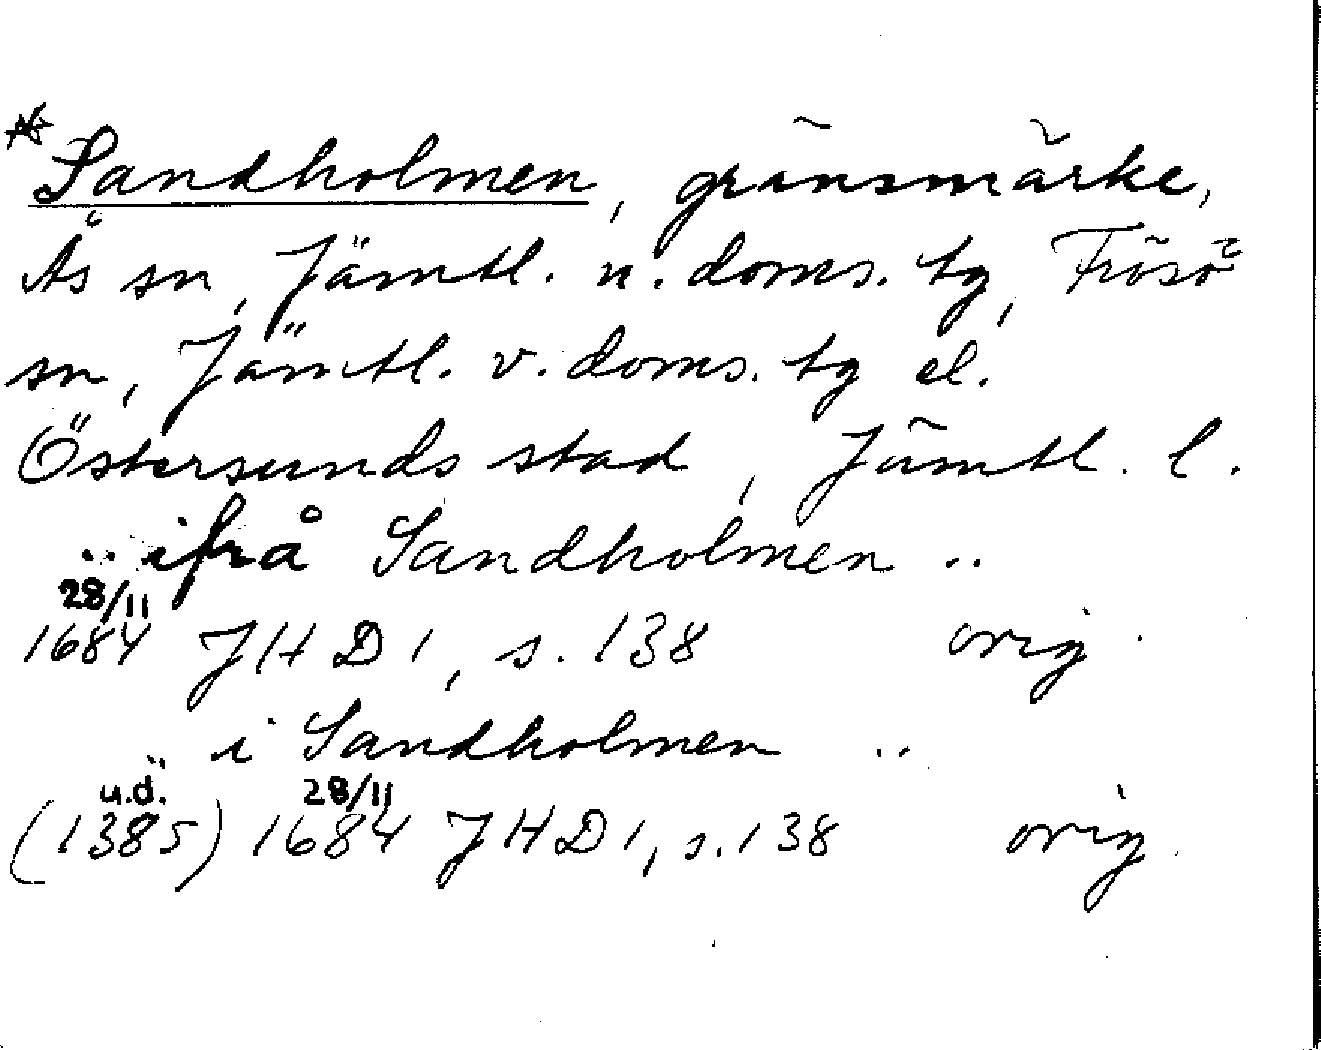 * Sandholmen, gränsmärke,
Ås sn, Jämtl. n. doms. tg, Frösö
sn, Jämtl. v. doms. tg el.
Östersunds stad, Jämtl. l.
.. ifrå Sandholmen ..
28/11
1684 JHD 1, s. 138 orig.
.. i Sandholmen ..
u.d. 28/11
(1385) 1684 JHD 1, s. 138 orig.